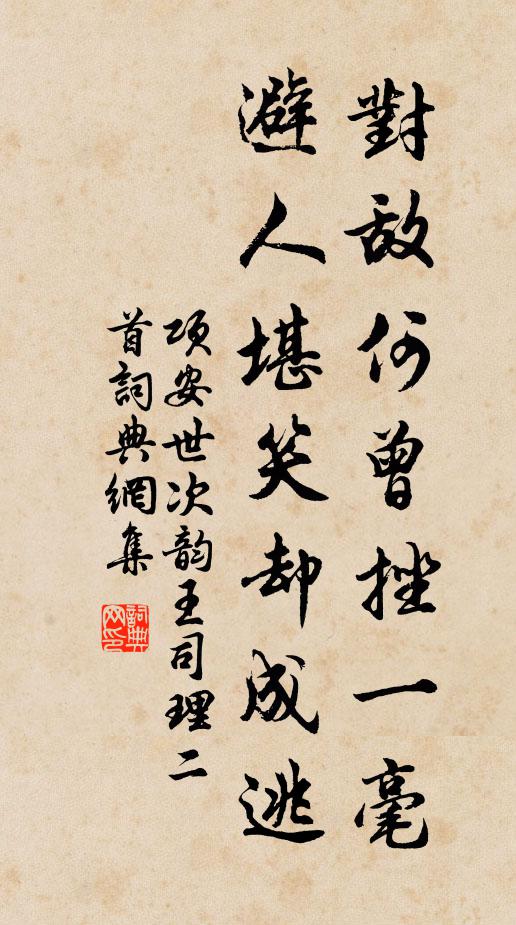 對敌何曾挫一毫
避人堪笑却成逃
项安世次韵王司理二
首詞典網集
詞典
网印